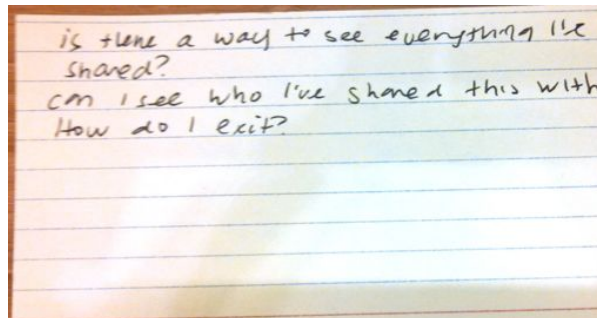 is there a way to see everything I've
shared?
can I see who I've shared this with
How do I exit?